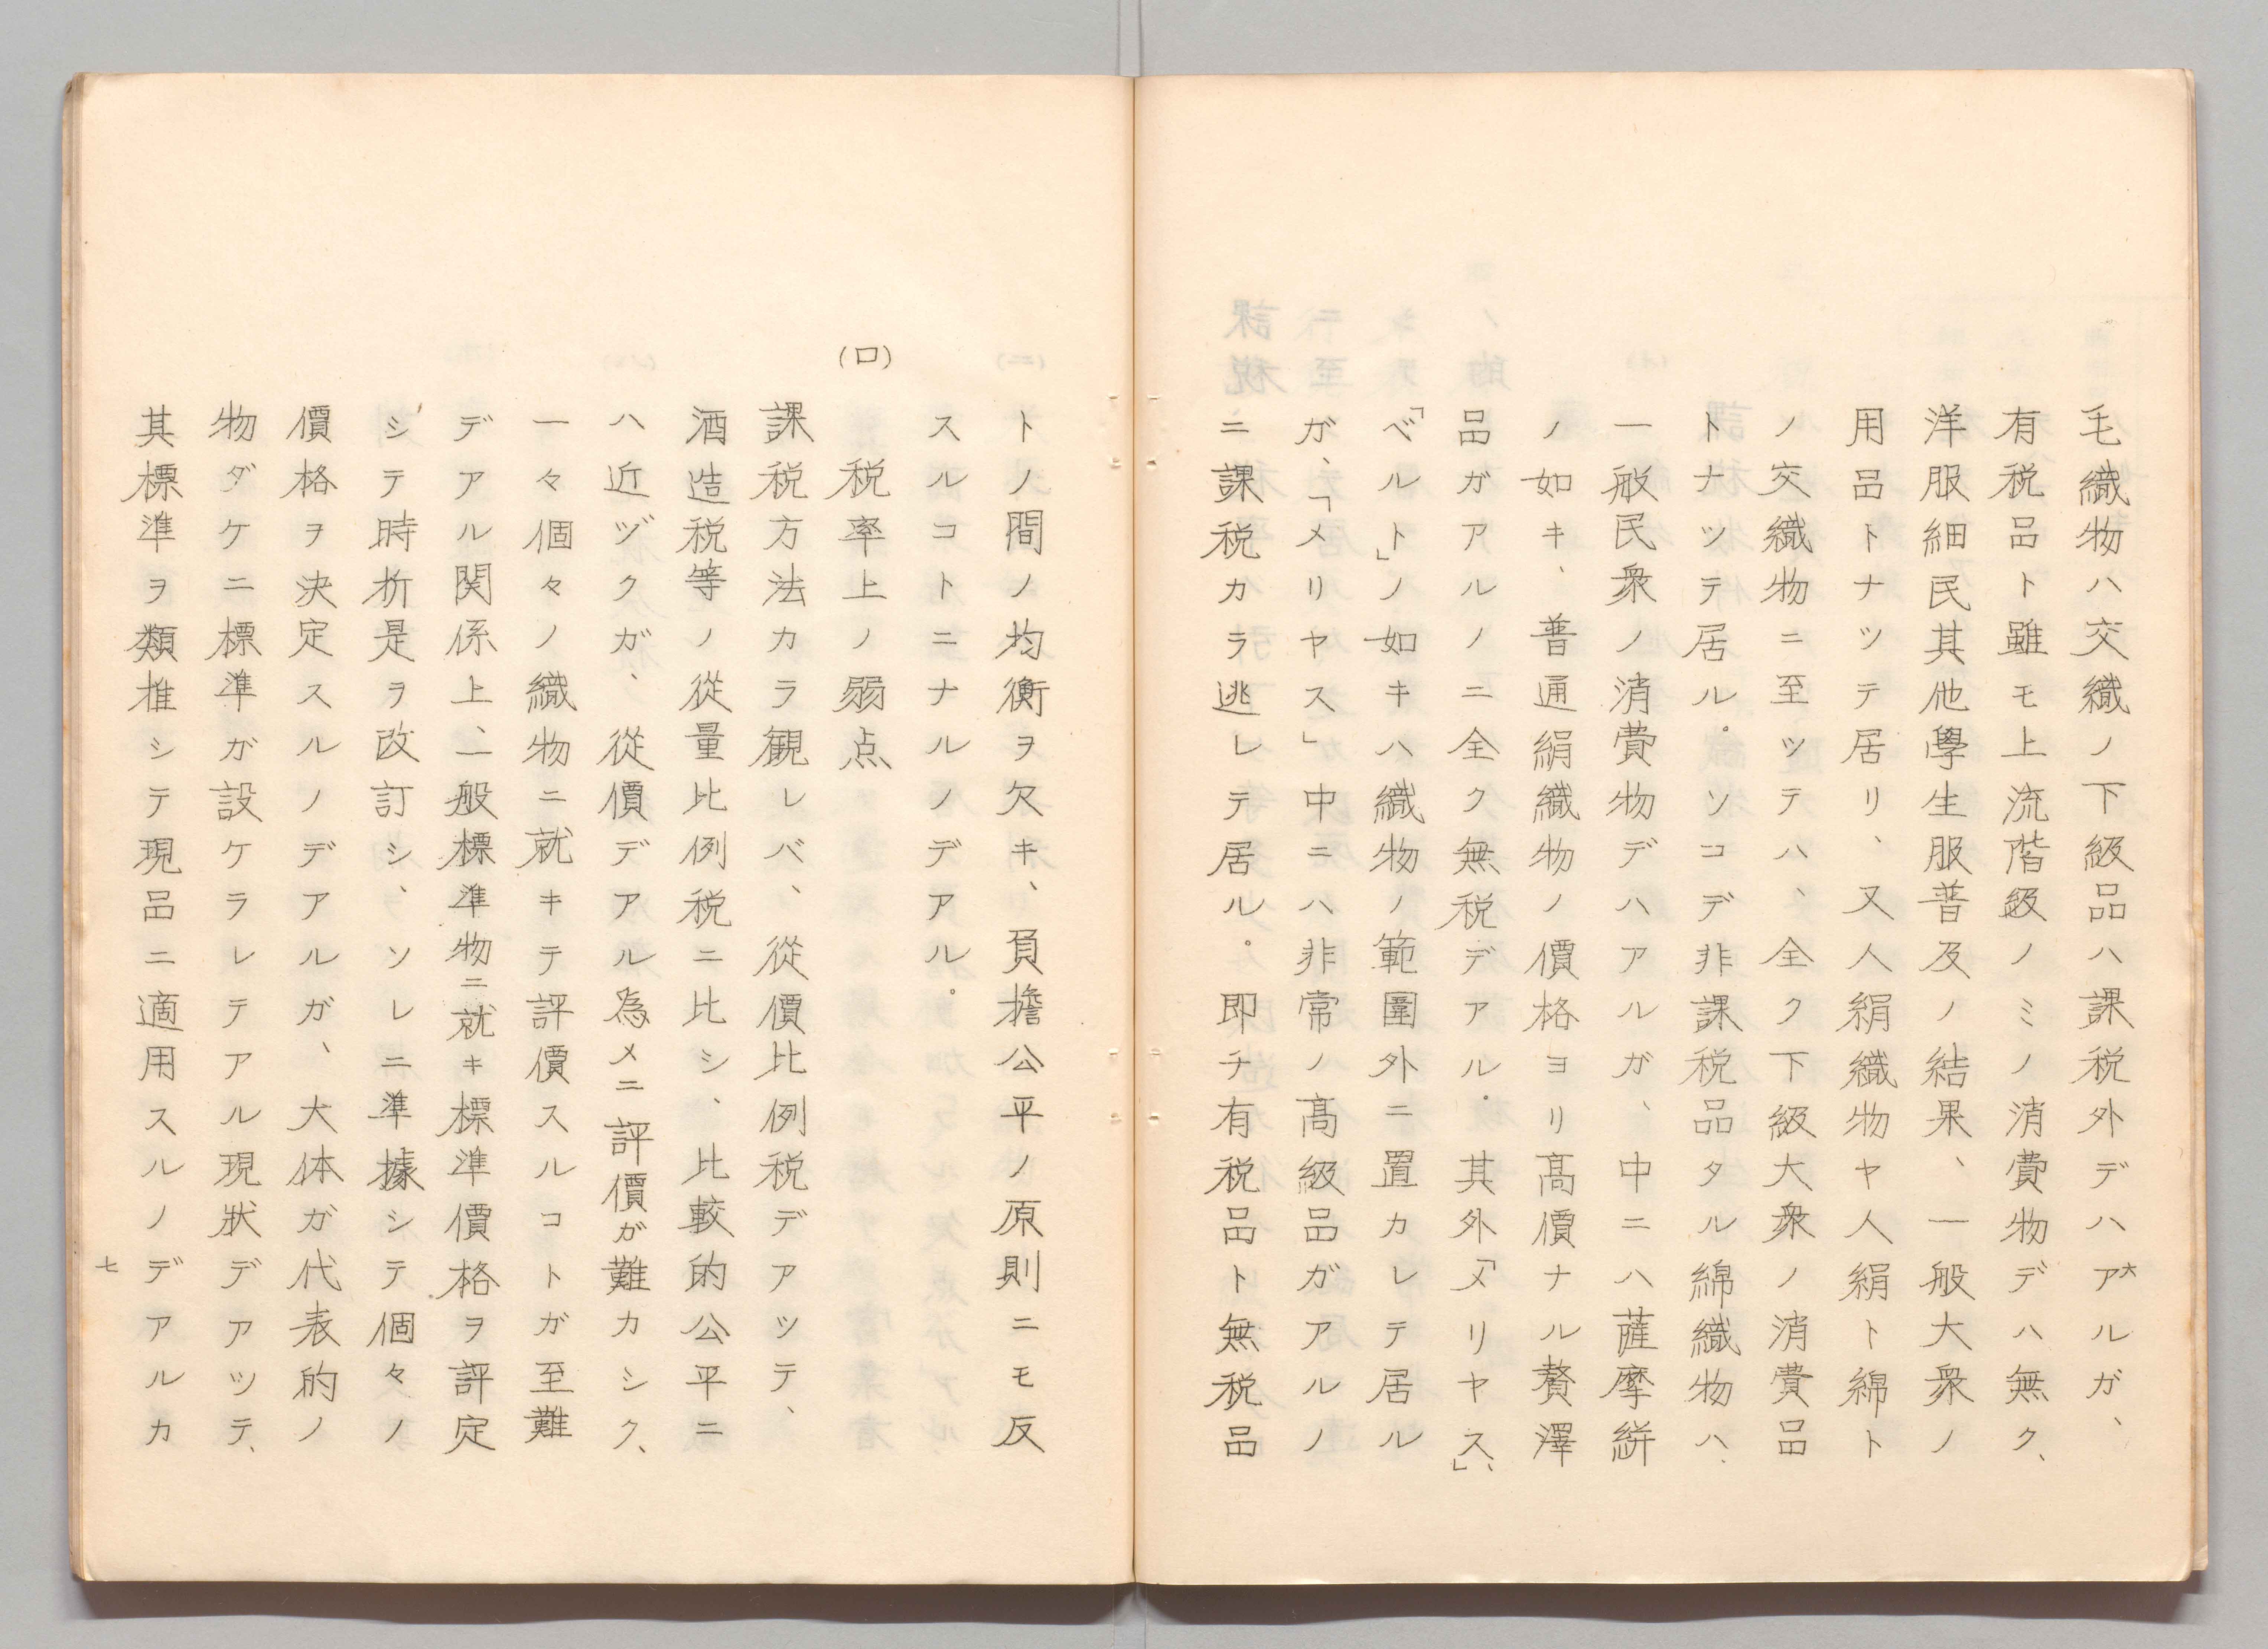 毛織物ハ交織ノ下級品ハ課税外デハアルガ、
有税品ト雖モ上流階級ノミノ消費物デハ無ク、
洋服細民其他學生服普及ノ結果、一般大衆ノ
用品トナツテ居リ、又人絹織物ヤ人絹ト綿ト
ノ交織物ニ至ツテハ、全ク下級大衆ノ消費品
トナツテ居ル。ソコデ非課税品タル綿織物ハ、
一般民衆ノ消費物デハアルガ、中ニハ薩摩絣
ノ如キ、普通絹織物ノ價格ヨリ髙價ナル贅澤
品ガアルノニ全ク無税デアル。其外「メリヤス」、
「ベルト」ノ如キハ織物ノ範圍外ニ置カレテ居ル
ガ、「メリヤス」中ニハ非常ノ髙級品ガアルノ
ニ課税カラ逃レテ居ル。即チ有税品ト無税品
六
トノ間ノ均衡ヲ欠キ、負擔公平ノ原則ニモ反
スルコトニナルノデアル。
(ロ) 税率上ノ弱点
課税方法カラ観レバ、從價比例税デアツテ、
酒造税等ノ從量比例税ニ比シ、比較的公平ニ
ハ近ヅクガ、從價デアル為メニ評價ガ難カシク、
一々個々ノ織物ニ就キテ評價スルコトガ至難
デアル関係上、一般標準物ニ就キ標準價格ヲ評定
シテ時折是ヲ改訂シ、ソレニ準據シテ個々ノ
價格ヲ決定スルノデアルガ、大体ガ代表的ノ
物ダケニ標準ガ設ケラレテアル現狀デアツテ、
其標準ヲ類推シテ現品ニ適用スルノデアルカ
七